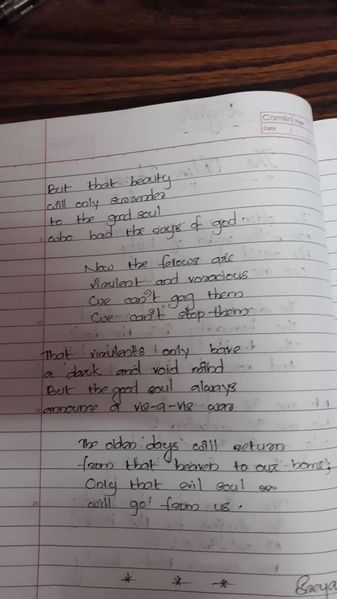 Camlin Page
Date
But that beauty
will only surrender
to the good soul
who had the ways of god.
Now the felows are
virulent and voracious
We can't gag them
We can't stop them
That virulents only have
a dark and void mind
But the good soul always
announce a vis-a-vis war
The olden days will return
from that heaven to our home;
Only that evil soul
will go from us.
* * *